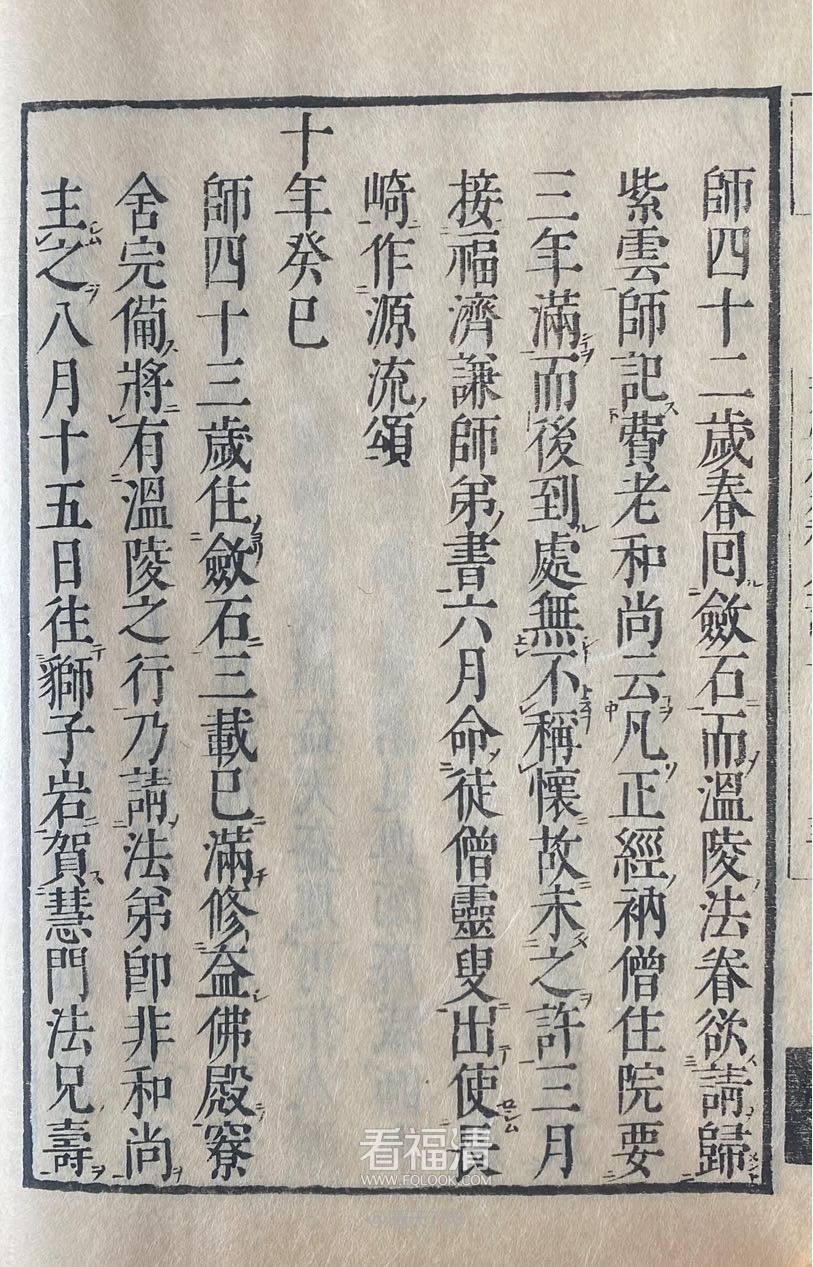 師四十二歲春囘斂石而溫陵法眷欲請歸
紫雲師記費老和尚云凡正經衲僧住院要
三年滿而後到處無不稱懷故未之許三月
接福濟謙師弟書六月命徒僧靈叟出使長
崎作源流頌
十年癸巳
師四十三歲住斂石三載已滿修益佛殿寮
舍完備將有溫陵之行乃請法弟即非和尚
主之八月十五日往獅子岩賀慧門法兄壽
看福清
WWW.FQLOOK.COM